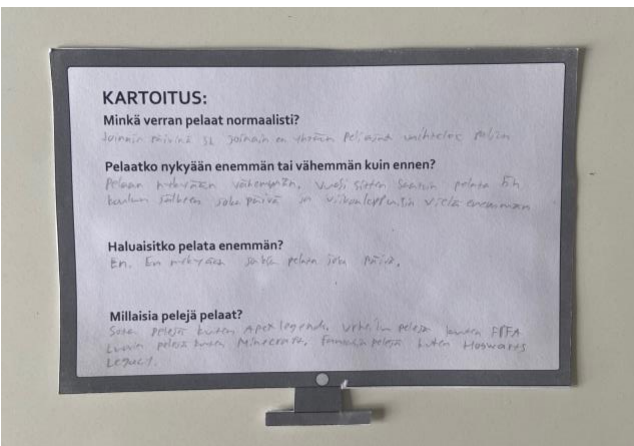 KARTOITUS:
Minkä verran pelaat normaalisti?
Joinain päivinä 5h joinain en yhtään peliaika vaihtelee paljon
Pelaatko nykyään enemmän tai vähemmän kuin ennen?
Pelaan nykyään vähemmän. Vuosi sitten saatoin pelata 5h
koulun jälkeen joka päivä ja viikonloppuisin vielä enemmän
Haluaisitko pelata enemmän?
En. En nykyään pelaa joka päivä.
Millaisia pelejä pelaat?
Sota pelejä kuten Apex legends, urheilu pelejä kuten FIFA
pelejä kuten Minecraft, Fantasia pelejä kuten Hogwarts
Legacy.